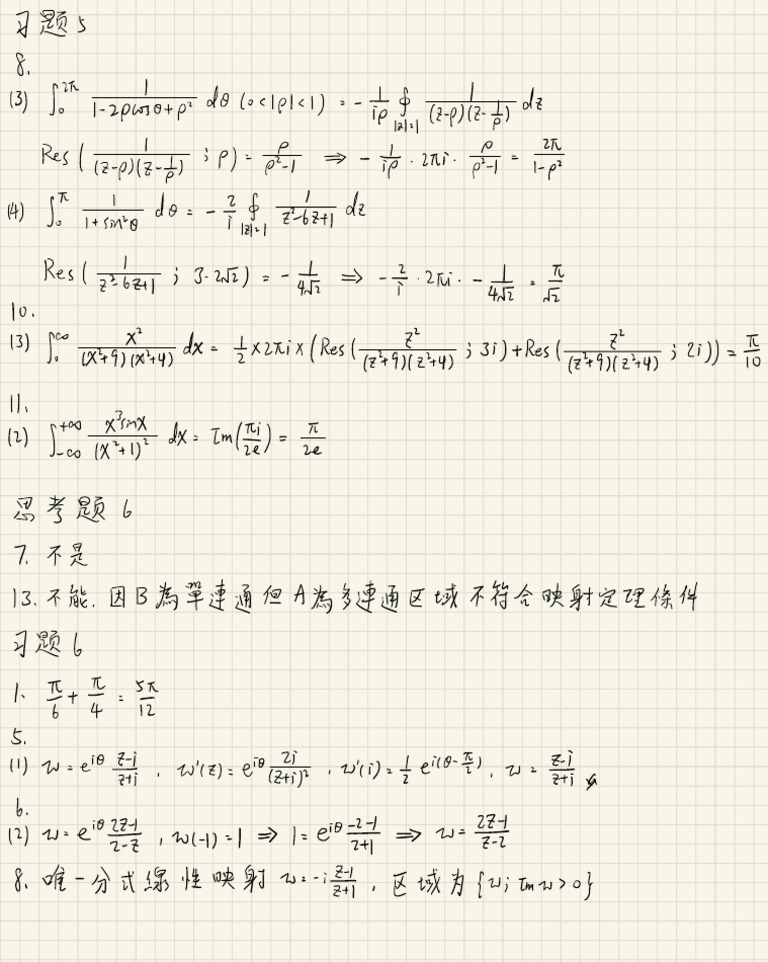 习题5
8.
(3) ∫₀^{2π} 1/(1-2ρcosθ+ρ²) dθ (0<|ρ|<1) = -1/(iρ) ∮_{|z|=1} 1/((z-ρ)(z-1/ρ)) dz
Res(1/((z-ρ)(z-1/ρ)) ; ρ) = ρ/(ρ²-1) ⇒ -1/(iρ) · 2πi · ρ/(ρ²-1) = 2π/(1-ρ²)
(4) ∫₀^π 1/(1+sin²θ) dθ = -2/i ∮_{|z|=1} 1/(z²-6z+1) dz
Res(1/(z²-6z+1) ; 3-2√2) = -1/(4√2) ⇒ -2/i · 2πi · -1/(4√2) = π/√2
10.
(3) ∫₀^∞ x²/((x²+9)(x²+4)) dx = 1/2 × 2πi × (Res(z²/((z²+9)(z²+4)) ; 3i) + Res(z²/((z²+9)(z²+4)) ; 2i)) = π/10
11.
(2) ∫_{-∞}^{+∞} x³sinx/(x²+1)² dx = Im(πi/2e) = π/2e
思考题 6
7. 不是
13. 不能. 因B為單連通但A為多連通区域不符合映射定理條件
习题6
1. π/6 + π/4 = 5π/12
5.
(1) w = e^{iθ} (z-i)/(z+i) , w'(z) = e^{iθ} 2i/(z+i)² , w'(i) = 1/2 e^{i(θ-π/2)} , w = (z-i)/(z+i)
6.
(2) w = e^{iθ} (2z-1)/(2-z) , w(-1) = 1 ⇒ 1 = e^{iθ} (-2-1)/(2+1) ⇒ w = (2z-1)/(z-2)
8. 唯一分式線性映射 w = -i (z-1)/(z+1) , 区域为 {w; Im w > 0}